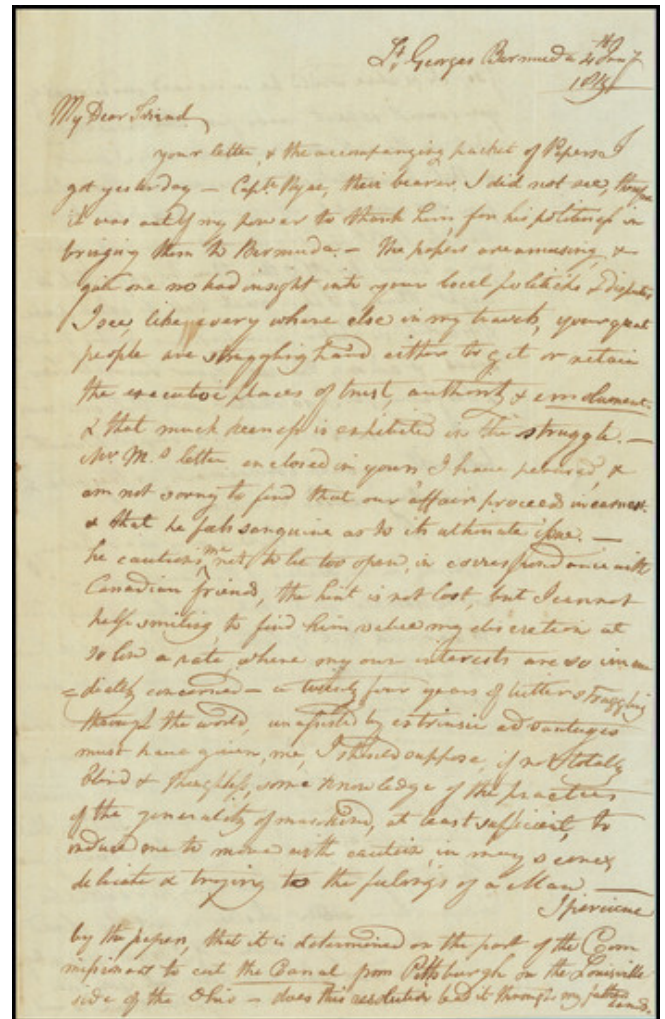 St. Georges Bermuda 4th Jany
My Dear Friend
your letter, & the accompanying packet of Papers I
got yesterday — Capt. their bearer, I did not see, tho
it was out of my power to thank him, for his politeness in
bringing them to Bermuda. — the papers are amusing, &
give one no bad insight into your local politicks & disputes
I see like every where else in my travels, your great
people are struggling hard either to get or retain
the executive places of trust, authority & emolument.
& that much keeness is exhibited in the struggle. —
Mr. M.s letter enclosed in yours I have perused, &
am not sorry to find that our affair proceeds in earnest.
& that he feels sanguine as to its ultimate issue. —
he cautions me not to be too open, in correspondance with
Canadian friend, the hint is not lost, but I cannot
help smiling, to find him value my discretion at
so low a rate, where my own interests are so imme
=diately concerned — a twenty four years of bitter struggling
through the world, unassisted by extrinsic advantages
must have given, me, I should suppose, if not totally
blind & thoughtless, some knowledge of the practices
of the generality of mankind, at least sufficient, to
induce me to move with caution, in many scenes
delicate & trying to the feelings of a Man —
I perceive
by the papers, that it is determined on the part of the Com
missioners to cut the Canal from Pittsburgh on the Louisville
side of the Ohio — does this resolution lead it through my fathers
lands.